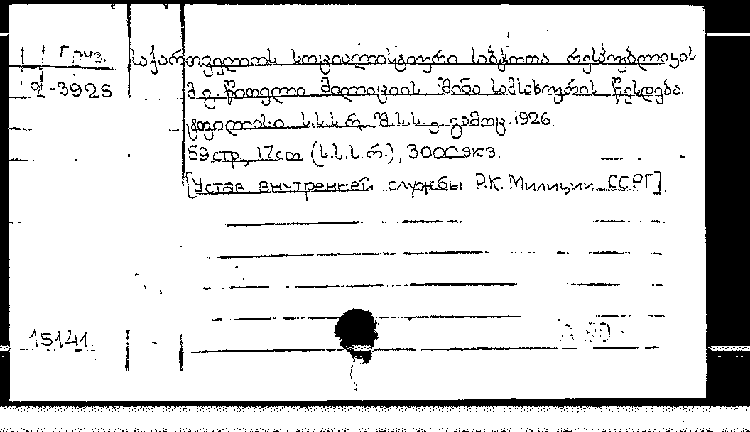 Груз. საქართველოს სოციალისტური საბჭოთა რესპუბლიკის
2-3926 მ.გ. წითელი მილიციის შინა სამსახურის წესდება.
ტფილისი ს.ს.ს.რ. შ.ს.ს.გ. გამოც. 1926.
59 стр., 17см (ს.ს.ს.რ.), 3000 экз.
[Устав внутренней службы Р.К. Милиции ССРГ].
15141